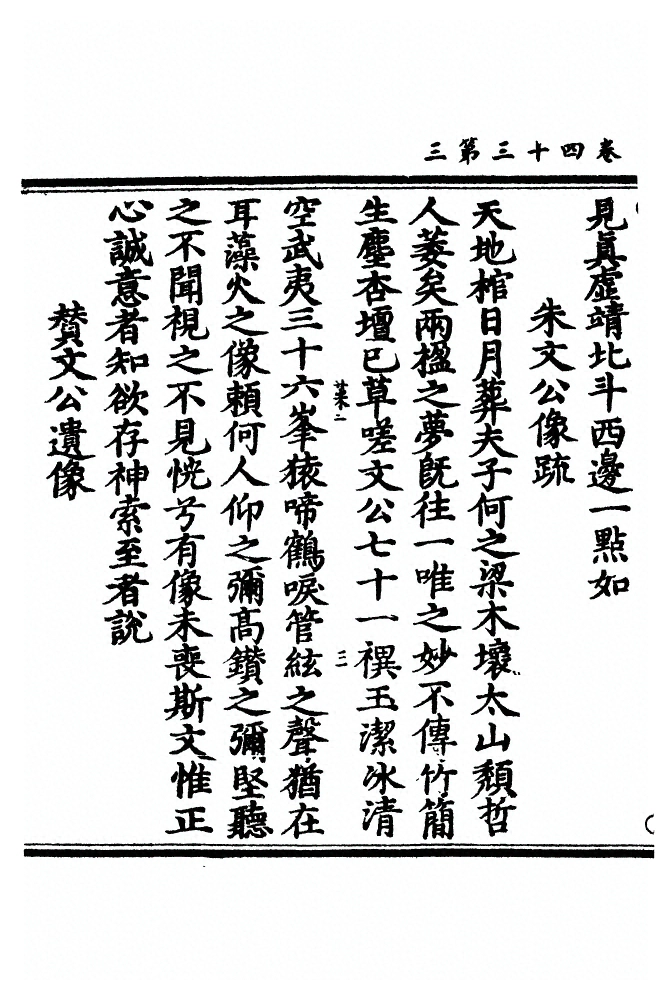 卷四十三第三
見眞虛靖北斗西邊一點如
朱文公像疏
天地棺日月葬夫子何之梁木壞太山頹哲
人萎矣兩楹之夢旣往一唯之妙不傳竹簡
生塵杏壇已草嗟文公七十一禩玉潔冰清
空武夷三十六峯猿啼鶴唳管絃之聲猶在
耳藻火之像賴何人仰之彌高鑽之彌堅聽
之不聞視之不見恍兮有像未喪斯文惟正
心誠意者知欲存神索至者說
贊文公遺像
三